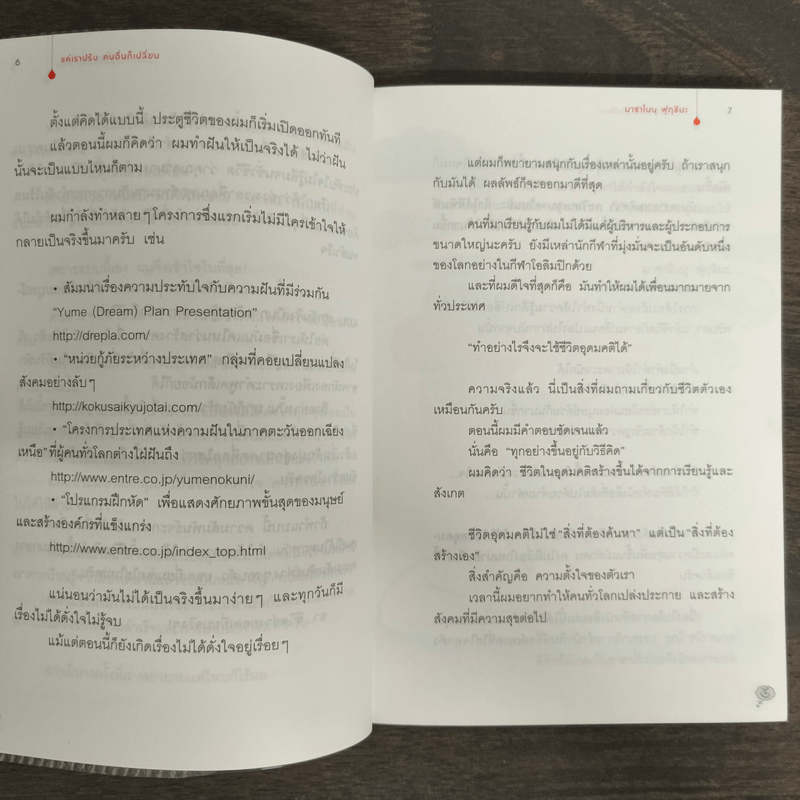 6
แค่เราปรับ คนอื่นก็เปลี่ยน
ตั้งแต่คิดได้แบบนี้ ประตูชีวิตของผมก็เริ่มเปิดออกทันที
แล้วตอนนี้ผมก็คิดว่า ผมทำฝันให้เป็นจริงได้ ไม่ว่าฝัน
นั้นจะเป็นแบบไหนก็ตาม
ผมกำลังทำหลายๆ โครงการซึ่งแรกเริ่มไม่มีใครเข้าใจให้
กลายเป็นจริงขึ้นมาครับ เช่น
• สัมมนาเรื่องความประทับใจกับความฝันที่มีร่วมกัน
"Yume (Dream) Plan Presentation"
http://drepla.com/
• "หน่วยกู้ภัยระหว่างประเทศ" กลุ่มที่คอยเปลี่ยนแปลง
สังคมอย่างลับๆ
http://kokusaikyujotai.com/
• "โครงการประเทศแห่งความฝันในภาคตะวันออกเฉียง
เหนือ" ที่ผู้คนทั่วโลกต่างใฝ่ฝันถึง
http://www.entre.co.jp/yumenokuni/
• "โปรแกรมฝึกหัด" เพื่อแสดงศักยภาพขั้นสุดของมนุษย์
และสร้างองค์กรที่แข็งแกร่ง
http://www.entre.co.jp/index_top.html
แน่นอนว่ามันไม่ได้เป็นจริงขึ้นมาง่ายๆ และทุกวันก็มี
เรื่องไม่ได้ดั่งใจไม่รู้จบ
แม้แต่ตอนนี้ก็ยังเกิดเรื่องไม่ได้ดั่งใจอยู่เรื่อยๆ
มาซาโนบุ ฟุกุชิมะ
7
แต่ผมก็พยายามสนุกกับเรื่องเหล่านั้นอยู่ครับ ถ้าเราสนุก
กับมันได้ ผลลัพธ์ก็จะออกมาดีที่สุด
คนที่มาเรียนรู้กับผมไม่ได้มีแค่ผู้บริหารและผู้ประกอบการ
ขนาดใหญ่นะครับ ยังมีเหล่านักกีฬาที่มุ่งมั่นจะเป็นอันดับหนึ่ง
ของโลกอย่างในกีฬาโอลิมปิกด้วย
และที่ผมดีใจที่สุดก็คือ มันทำให้ผมได้เพื่อนมากมายจาก
ทั่วประเทศ
"ทำอย่างไรจึงจะใช้ชีวิตอุดมคติได้"
ความจริงแล้ว นี่เป็นสิ่งที่ผมถามเกี่ยวกับชีวิตตัวเอง
เหมือนกันครับ
ตอนนี้ผมมีคำตอบชัดเจนแล้ว
นั่นคือ "ทุกอย่างขึ้นอยู่กับวิธีคิด"
ผมคิดว่า ชีวิตในอุดมคติสร้างขึ้นได้จากการเรียนรู้และ
สังเกต
ชีวิตอุดมคติไม่ใช่ "สิ่งที่ต้องค้นหา" แต่เป็น "สิ่งที่ต้อง
สร้างเอง"
สิ่งสำคัญคือ ความตั้งใจของตัวเรา
เวลานี้ผมอยากทำให้คนทั่วโลกเปล่งประกาย และสร้าง
สังคมที่มีความสุขต่อไป